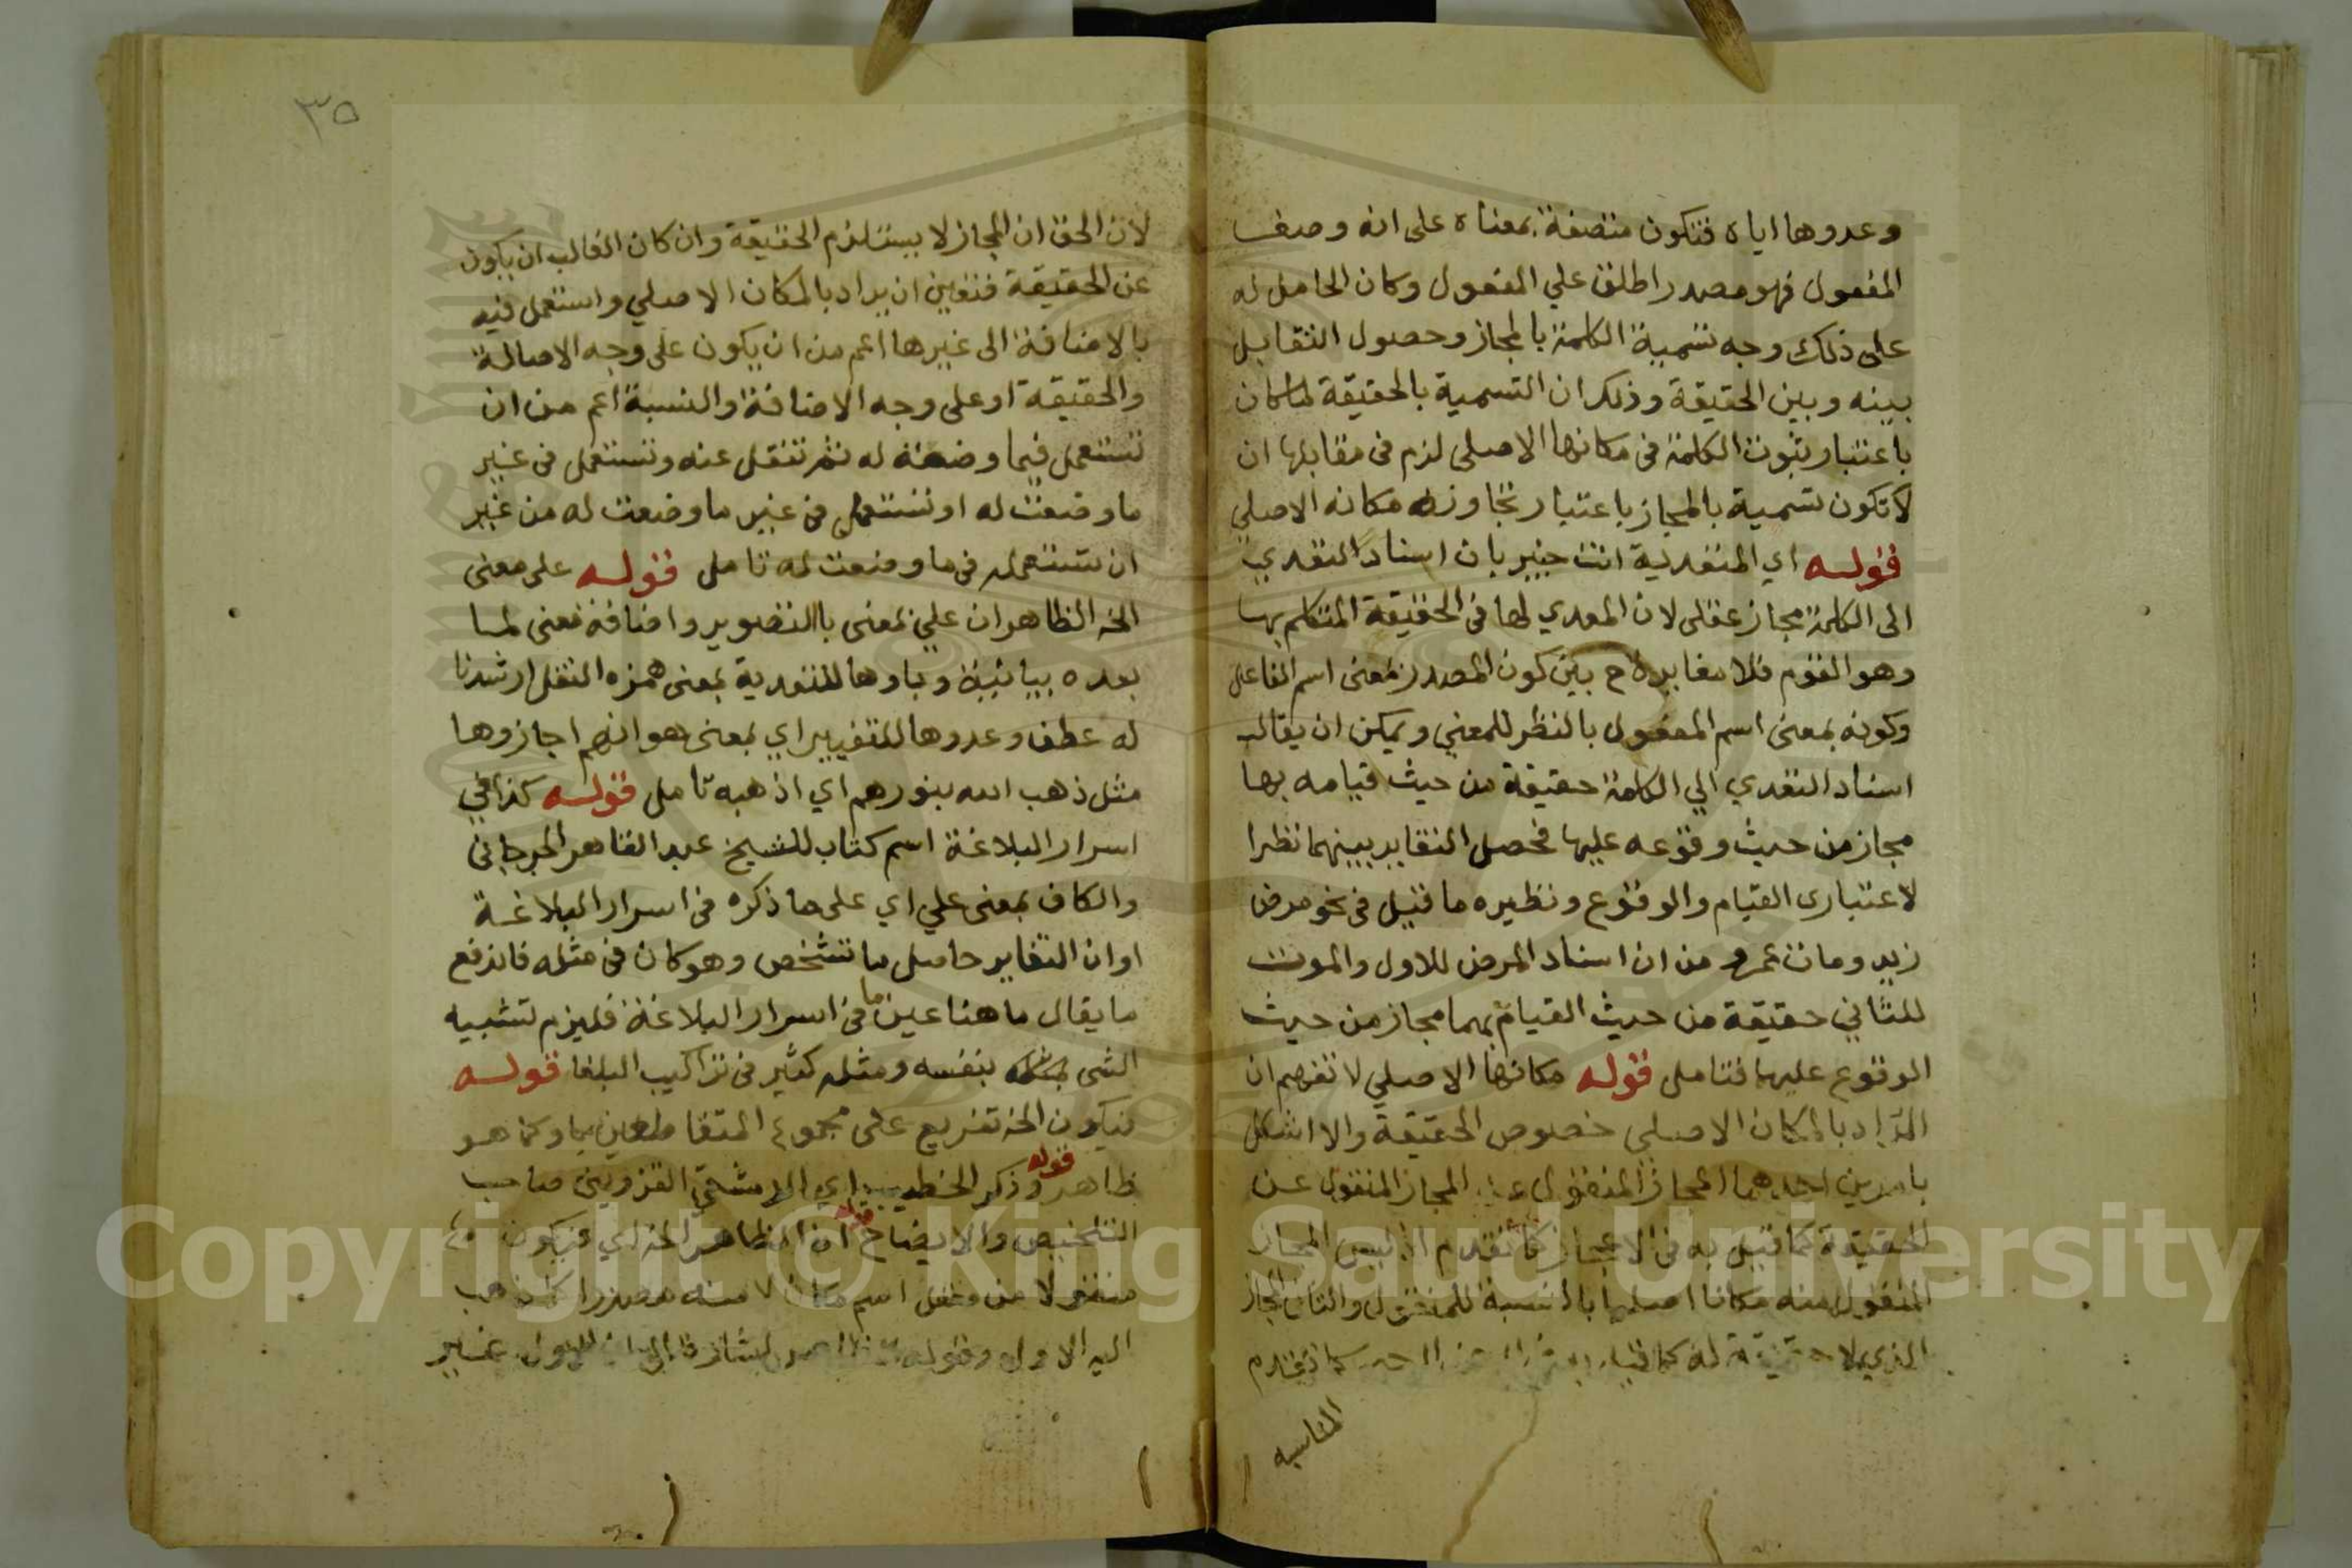 وعدوها اياه فتكون متصفة بمعناه على انه وصف
المفعول فهو مصدر اطلق علي المفعول وكان الحامل له
على ذلك وجه تسمية الكلمة بالمجاز وحصول التقابل
بينه وبين الحقيقة وذلك ان التسمية بالحقيقة لما كان
باعتبار ثبوت الكلمة فى مكانها الاصلى لزم فى مقابلها ان
لا تكون تسمية بالمجاز باعتبار تجاوزه مكانه الاصلي
قوله اي المتعدية انت خبير بان اسناد التعدي
الى الكلمة مجاز عقلى لان المعدي لها فى الحقيقة المتكلم بها
وهو القوم فلا مغايرة ح بين كون المصدر بمعنى اسم الفاعل
وكونه بمعنى اسم المفعول بالنظر للمعني ويمكن ان يقال
اسناد التعدي الي الكلمة حقيقة من حيث قيامه بها
مجاز من حيث وقوعه عليها فحصل التغاير بينهما نظرا
لاعتبارى القيام والوقوع ونظيره ما قيل فى نحو مرض
زيد ومات عمرو من ان اسناد المرض للاول والموت
للثاني حقيقة من حيث القيام بهما مجاز من حيث
الوقوع عليهما فتامل قوله مكانها الاصلي لا تفهم ان
المراد بالمكان الاصلي خصوص الحقيقة والا اشكل
بامرين احدهما المجاز المنقول عن المجاز المنقول عن
الحقيقة كما قيل به فى الاعجاز كما تقدم اذ ليس المجاز
المنقول منه مكانا اصليا بالنسبة للمنقول والثانى المجاز
الذي لا حقيقة له كما قيل كما تقدم
المناسبه
٣٥
لان الحق ان المجاز لا يستلزم الحقيقة وان كان الغالب ان يكون
عن الحقيقة فتعين ان يراد بالمكان الاصلي واستعمل فيه
بالاضافة الى غيرها اعم من ان يكون على وجه الاصالة
والحقيقة او على وجه الاضافة والنسبة اعم من ان
تستعمل فيما وضعت له ثم تنقل عنه وتستعمل فى غير
ما وضعت له او تستعمل فى غير ما وضعت له من غير
ان تستعمل فى ما وضعت له تامل قوله على معنى
الخ الظاهر ان علي بمعنى با التصوير واضافة معنى لما
بعده بيانية وباوها للتعدية بمعنى همزه النقل ارشدنا
له عطف وعدوها للتفسير اي بمعنى هو انهم اجازوها
مثل ذهب الله بنورهم اي اذهبه تامل قوله كذا في
اسرار البلاغة اسم كتاب للشيخ عبد القاهر الجرجاني
والكاف بمعنى علي اي على ما ذكره فى اسرار البلاغة
او ان التغاير حاصل بالتشخص وهو كان فى مثله فاندفع
ما يقال ما هنا عين ما فى اسرار البلاغة فليزم تشبيه
الشى بنفسه ومثله كثير فى تراكيب البلغا قوله
فيكون الخ تفريع على مجموع المتعاطفين بما وكما هو
ظاهر قوله وذكر الخطيب اي الدمشقي القزويني صاحب
التلخيص والايضاح قوله ان الظاهر الخ اي فيكون
منقولا من مفعل اسم مكان لا منه مصدرا كما ذهب
اليه الاول وقوله اشارة الى ان للاول غير
Copyright © King Saud University